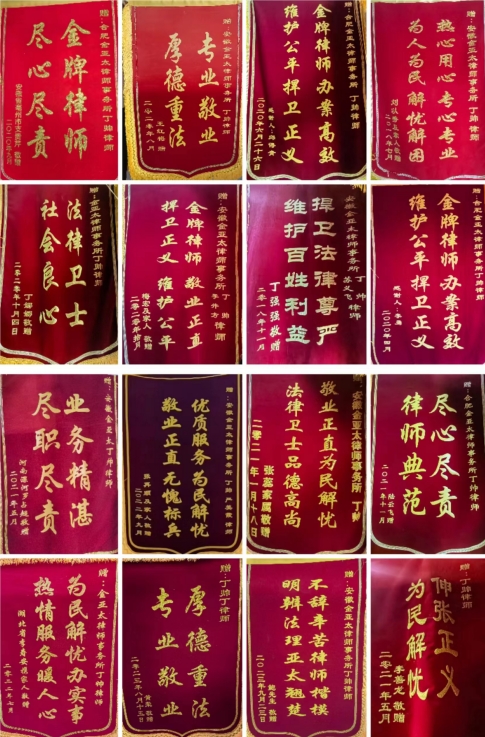 赠：合肥金亚太律师事务所丁帅律师
金牌律师
尽心尽责
安徽省亳州市支惠开 敬赠
二〇二〇年九月
赠：安徽金亚太律师事务所 丁帅律师
专业敬业
厚德重法
二〇二〇年八月
赠：合肥金亚太律师事务所 丁帅律师
金牌律师 办案高效
维护公平 捍卫正义
二〇二〇年六月二十六日
赠：合肥金亚太律师事务所 丁帅律师
热心用心 专心专业
为人为民 解忧解困
二〇一八年七月
赠：安徽金亚太律师事务所丁帅律师
法律卫士
社会良心
丁娜娜敬赠
二零二零年十月四日
赠：安徽金亚太律师事务所 丁帅 李升方 律师
金牌律师 敬业正直
捍卫正义 维护公平
梅宏及家人 敬赠
二零二零年拾月
安徽金亚太律师事务所 丁帅 苏义飞 律师
捍卫法律尊严
维护百姓利益
丁强强敬赠
二〇一八年十一月
赠：合肥金亚太律师事务所丁帅律师
金牌律师 办案高效
维护公平 捍卫正义
二〇二〇年四月
赠：安徽金亚太丁帅律师
业务精湛
尽职尽责
二〇二一年五月
赠：安徽金亚太律师事务所丁帅
优质服务为民解忧
敬业正直无愧标兵
二〇二二年九月
安徽金亚太律师事务所 丁帅
敬业正直为民解忧
法律卫士品德高尚
张蕊家属敬赠
二零二一年一月十八日
赠：合肥金亚太律师事务所丁帅律师
尽心尽责
律师典范
陆云飞 赠
二〇二一年十一月
赠：金亚太律师事务所丁帅律师
为民解忧办实事
热情服务暖人心
二〇二二年七月
赠：丁帅律师
厚德重法
专业敬业
赠：安徽金亚太律师事务所丁帅律师
不辞辛苦律师楷模
明辨法理亚太翘楚
鲍先生 敬赠
赠：丁帅律师
伸张正义
为民解忧
李善龙 敬赠
二〇二一年五月